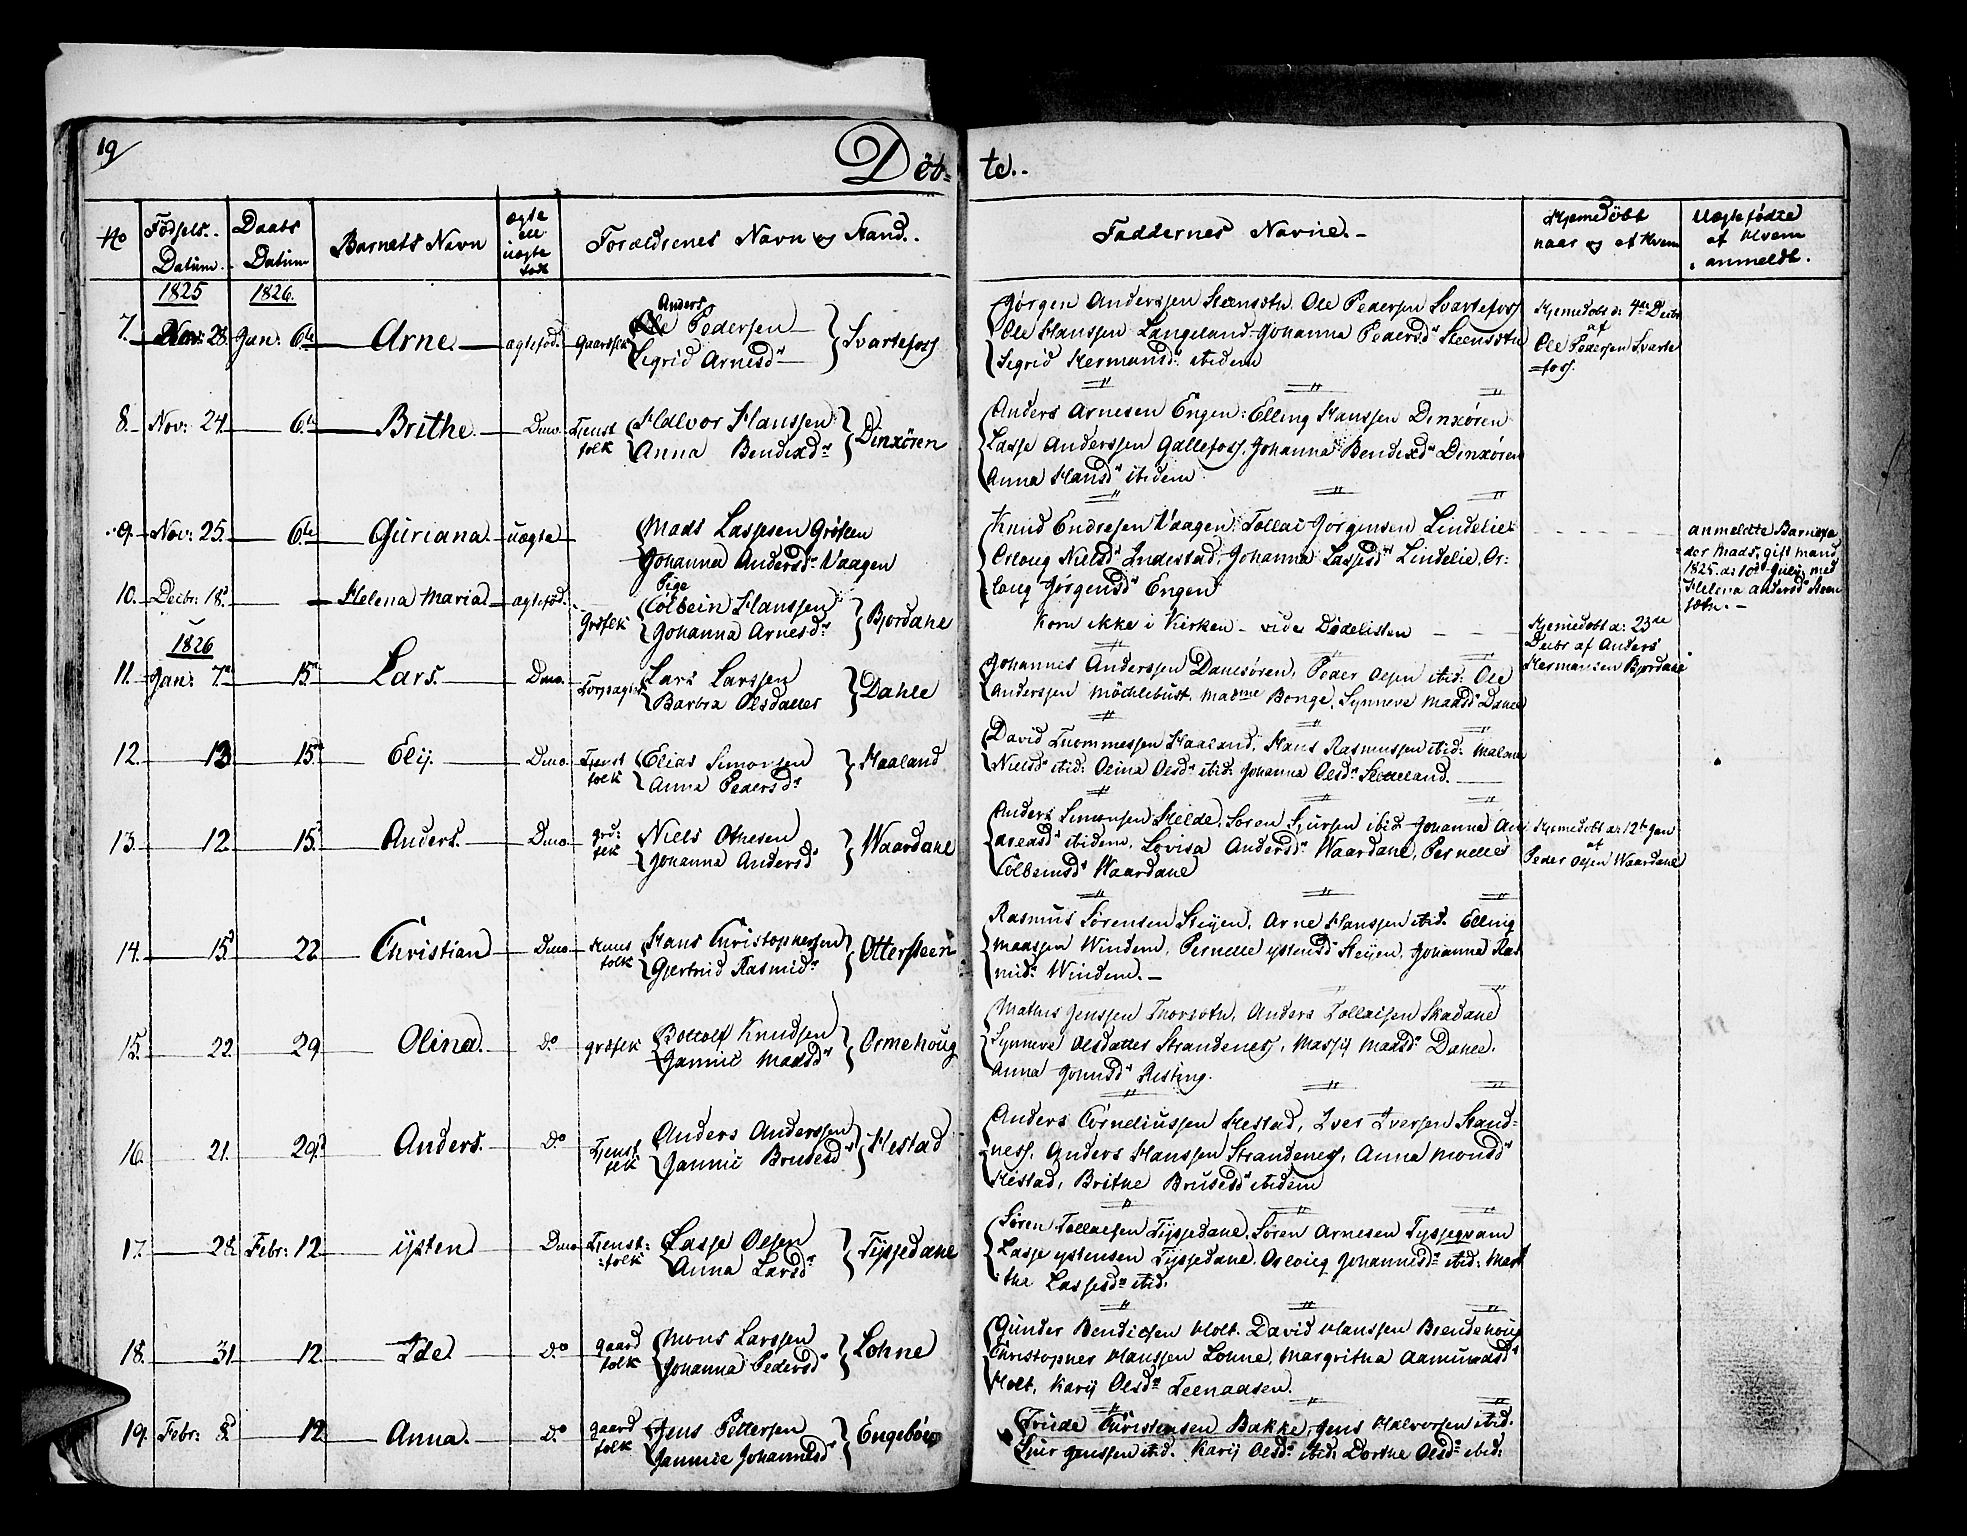 19
Döb-
te.-
No
Födsels.
Datum.
Daabs
Datum
Barnets Navn
ægte
ell
uægte
född
Forældrenes Navn og Stand.
Faddernes Navne.-
Hjemedöbt
naar og af Hvem
Uægtefödte
af Hvem
anmeldt.
1825
1826.
7. Nov: 28. Jan: 6te Arne. ægteföd. Gaardfolk
Anders
Ole Pedersen
Sigrid Arnesdr
Svartefoss
Jörgen Anderssen Steensætn Ole Pedersen Svartefoss
Ole Hanssen Langeland Johanna Pedersdr Steensætn
Sigrid Hermansdr ibidem
Hjemedöbt d: 4de Decbr
af
Ole Pedersen Svarte
foss.
8. Nov: 24. 6te Brithe. Dmo. Tjenst
folk
Halvor Hanssen
Anna Bendixdr
Dinxören
Anders Arnesen Engen: Elling Hanssen Dinxören
Lasse Anderssen Gallefoss. Johanna Bendixdr Dinxören
Anna Hansdr ibidem
9. Nov: 25. 6te Guriana. uægte
Mads Lassesen Gröften
Johanna Andersdr Vaagen
Pige
Knud Endresen Vaagen. Tollac Jörgensen Lindelie
Erloug Nielsdr Indestad, Johanna Lassesdr Lindelie, Or-
loug Jörgensdr Engen
anmeldte Barnefa
der Mads, gift mand,
1825 d: 10de July med
Helena Andersdr Steen
sætn. -
10. Decbr: 18. Helena Maria ægteföd.
Grdfolk
Colbein Hanssen
Johanna Arnesdr
Bjordahl
Kom ikke i Kirken - vide Dödelisten
Hjemedöbt d: 23de
Decbr af Anders
Hermansen Bjordahl
1826
11. Jan: 7de 15de Lars. Dmo.
Lars Larssen
Barbra Olsdatter
Dahle
Johannes Anderssen Danesören, Peder Olsen ibid: Ole
Anderssen Möcklebust, Madme Bonge, Synneve Madsdr Dahle
12. 13 15de Elij. Dmo. Tjenst
folk
Elias Simonsen
Anna Pedersdr
Haaland
David Thommessen Haaland. Hans Rasmussen ibid: Malena
Nielsdr ibid: Olina Olsdr ibid: Johanna Olsdr Skeeland.
13. 12 15. Anders. Dmo. grd:
folk
Niels Othesen
Johanna Andersdr
Waardahl
Anders Simonsen Helde, Sören Sjursen ibid Johanna An-
dreasdr ibidem, Lovisa Andersdr Waardahl, Pernelle
Colbeinsdr Waardahl
Hjemedöbt d: 12te Jan
af
Peder Olsen Waardahl
14. 15. 22 Christian Dmo Huus
folk
Hans Christophersen
Gjertrud Rasmidr
Ottersteen
Rasmus Sörensen Steijen, Arne Hanssen ibid. Elling
Madssen Windem, Pernelle ystensdr Steijen, Johanna Ras
midr Windem. -
15. 22. 29 Olina. Do grdfolk
Bottolf Knudsen
Jannic Madsdr
Ormehoug
Mathis Jenssen Thorsætn, Anders Tollaksen Skadahl
Synneve Olsdatter Strandenes, Massij Madsdr Dahle.
Anna Johnsdr Risting.
16. 21. 29. Anders. Do Tjenst
folk
Anders Anderssen
Jannic Brusesdr
Hestad
Anders Corneliussen Hestad, Iver Iversen Stand-
ness. Anders Hanssen Strandenes, Anna Monsdr
Hestad, Brithe Brusesdr ibidem
17. 28. Febr: 12 ijsten Dmo Tjenst:
folk
Lasse Olsen
Anna Larsdr
Tijssedahl
Sören Tollaksen Tijssedahl, Sören Arnesen Tijssequam
Lasse ystensen Tijssedahl. Oslvieg Johannesdr ibid: Mar-
the Lassesdr ibid.
18. 31 12. Ide. Do gaard
folk
Mons Larssen
Johanna Pedersdr
Lohne
Gunder Bendicsen Holt. David Hanssen Brendehoug
Christopher Hanssen Lohne, Margritha Aamundsdr
Holt, Karij Olsdr Teenaasen.
19. Febr: 8. 12 Anna. Do gaard
folk
Jens Pettersen
Jannice Johannesdr
Engeböe
Trude Christensen Bakke, Jens Halvorsen ibid.
Siur Jenssen ibid. Karij Olsdr ibid: Dorthe Olsdr ibid: